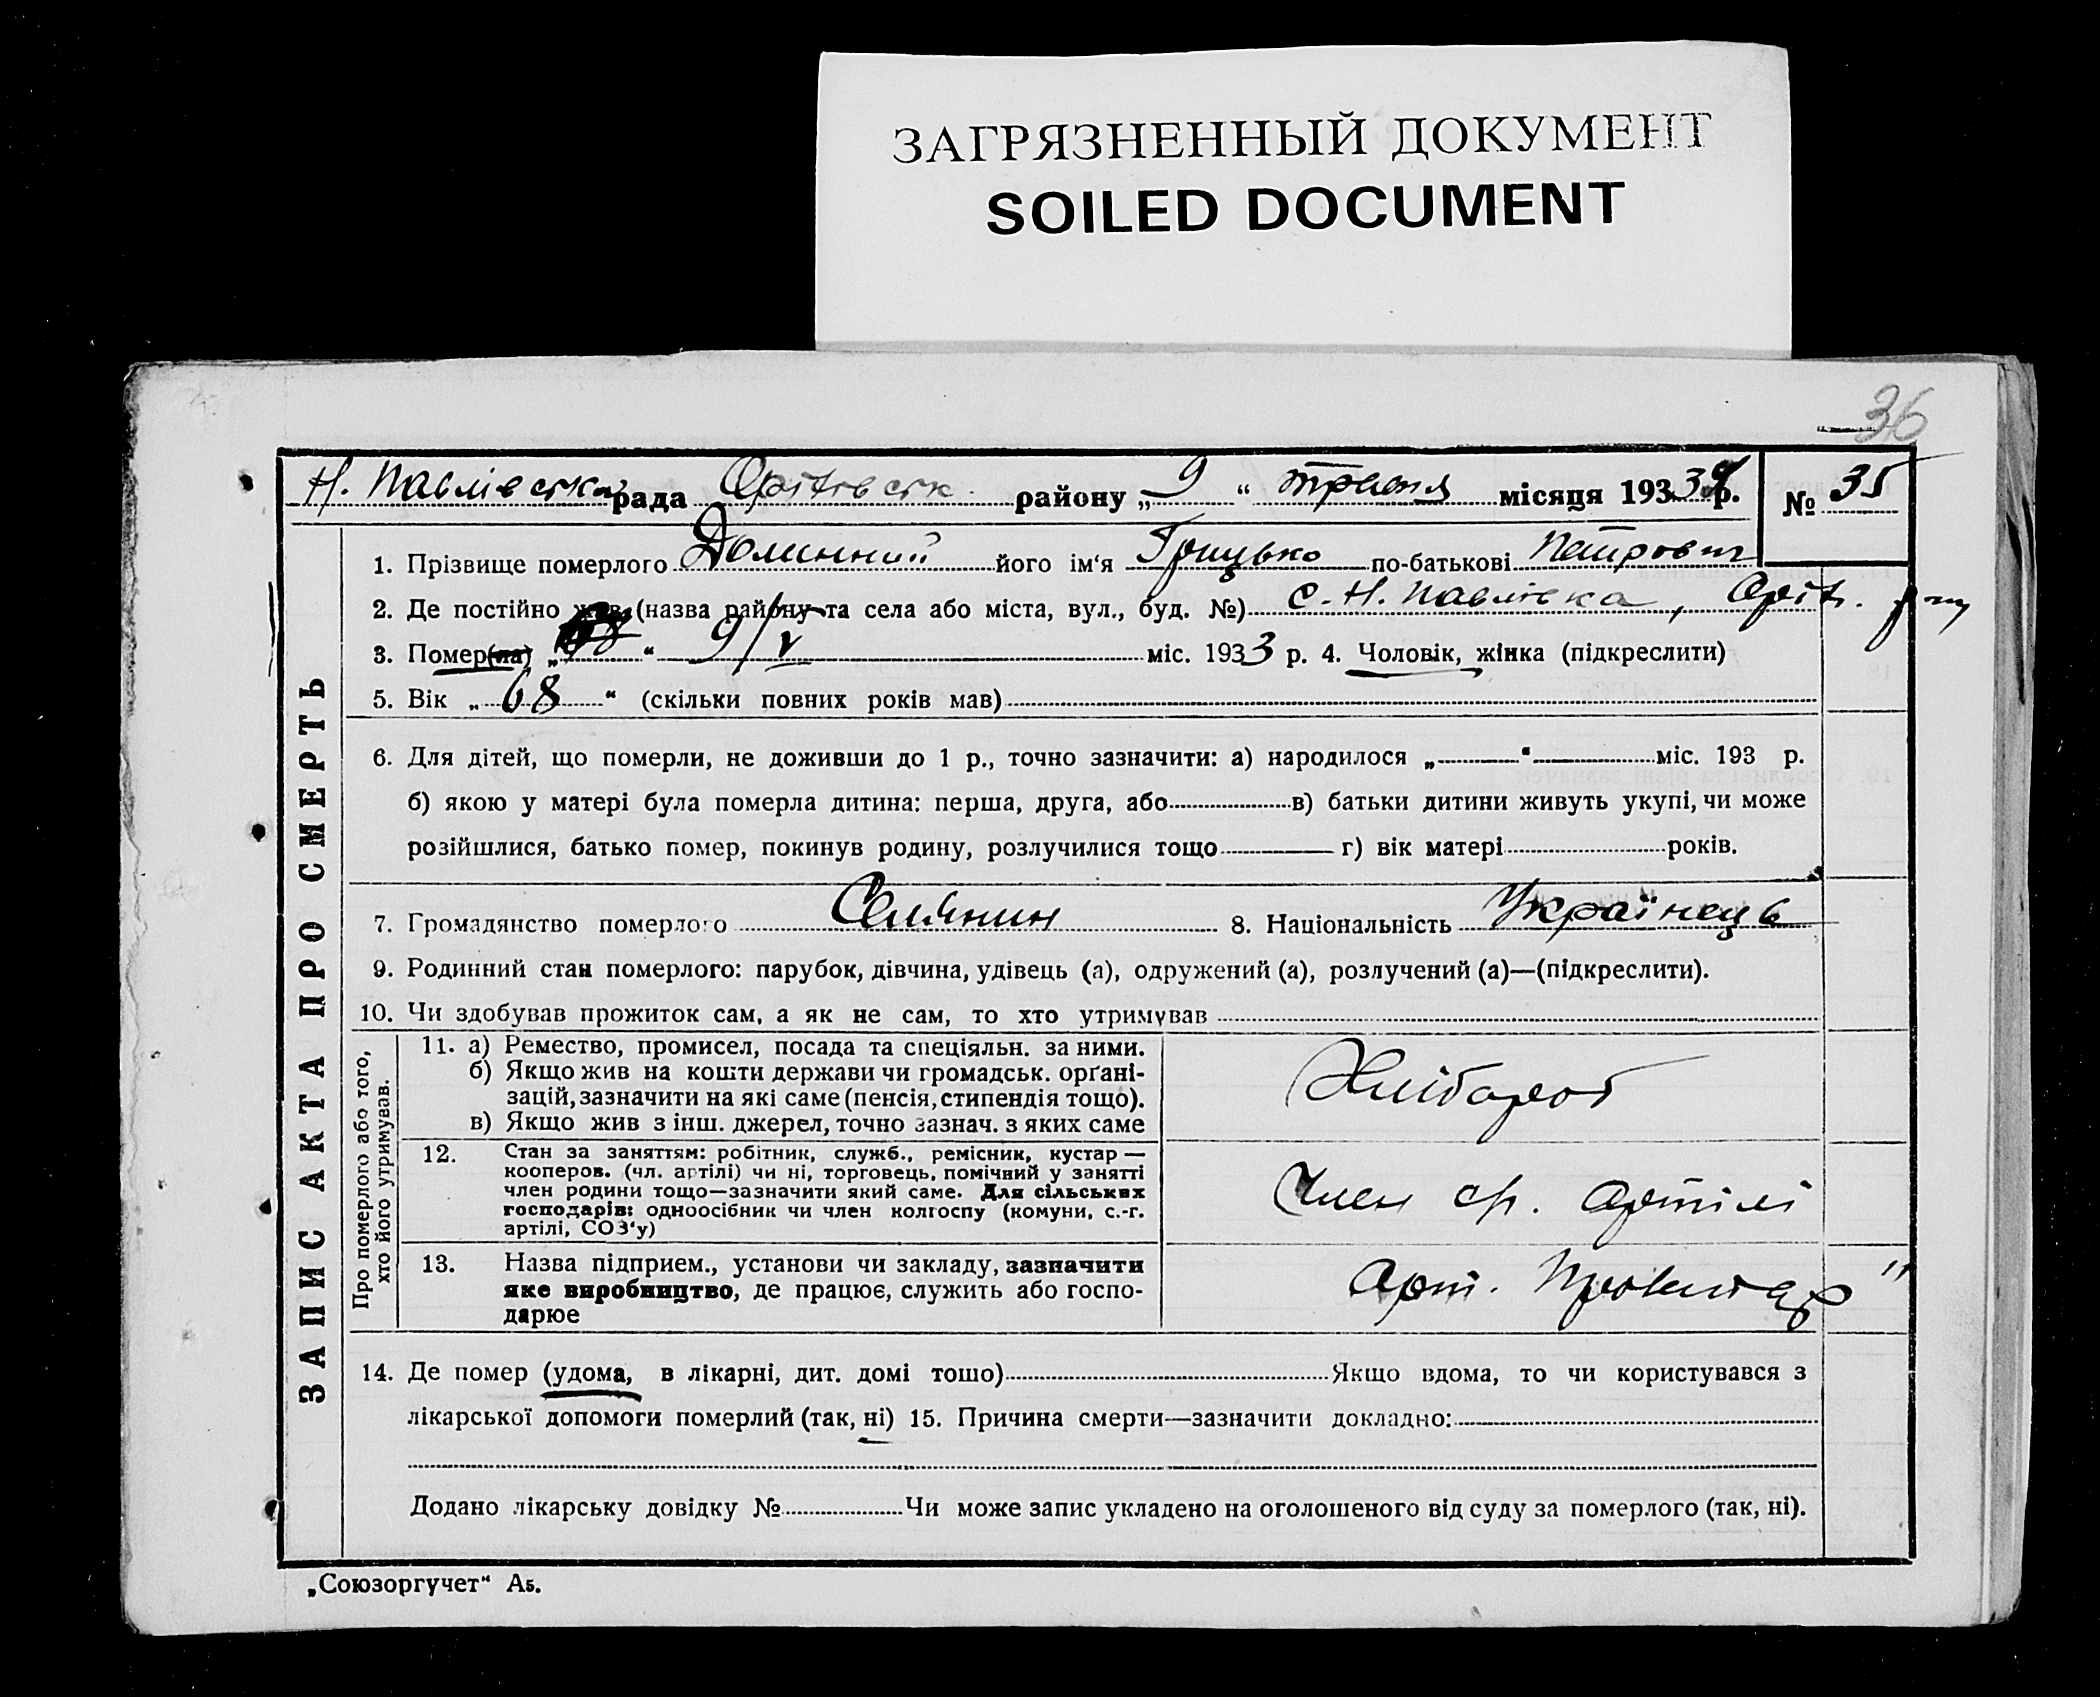 ЗАГРЯЗНЕННЫЙ ДОКУМЕНТ
SOILED DOCUMENT
36
Н. Павлівська рада Оріхівськ району „ 9 “ травня місяця 193 р. № 35
1. Прізвище померлого Долинний його ім‘я Грицько по-батькові Петрович
2. Де постійно жив (назва району та села або міста, вул., буд. №) с. Н. Павлівка, Оріх. р-ну
3. Помер(ла) „ “ 9/V міс. 1933 р. 4. Чоловік, жінка (підкреслити)
5. Вік „ 68 “ (скільки повних років мав)
6. Для дітей, що померли, не доживши до 1 р., точно зазначити: а) народилося „ “ міс. 193 р.
б) якою у матері була померла дитина: перша, друга, або в) батьки дитини живуть укупі, чи може
розійшлися, батько помер, покинув родину, розлучилися тощо г) вік матері років.
7. Громадянство померлого Селянин 8. Національність Українець
9. Родинний стан померлого: парубок, дівчина, удівець (а), одружений (а), розлучений (а)—(підкреслити).
10. Чи здобував прожиток сам, а як не сам, то хто утримував
ЗАПИС АКТА ПРО СМЕРТЬ
Про померлого або того,
хто його утримував.
11. а) Ремество, промисел, посада та спеціяльн. за ними.
б) Якщо жив на кошти держави чи громадськ. орґані-
зацій, зазначити на які саме (пенсія, стипендія тощо).
в) Якщо жив з інш. джерел, точно зазнач. з яких саме
Хлібороб
12. Стан за заняттям: робітник, служб., ремісник, кустар —
кооперов. (чл. артілі) чи ні, торговець, помічний у занятті
член родини тощо—зазначити який саме. Для сільських
господарів: одноосібник чи член колгоспу (комуни, с.-г.
артілі, СОЗ‘у)
Член ср. артілі
13. Назва підприєм., установи чи закладу, зазначити
яке виробництво, де працює, служить або госпо-
дарює
Арт.
14. Де помер (удома, в лікарні, дит. домі тощо) Якщо вдома, то чи користувався з
лікарської допомоги померлий (так, ні) 15. Причина смерти—зазначити докладно:
Додано лікарську довідку № Чи може запис укладено на оголошеного від суду за померлого (так, ні).
„Союзоргучет“ А5.